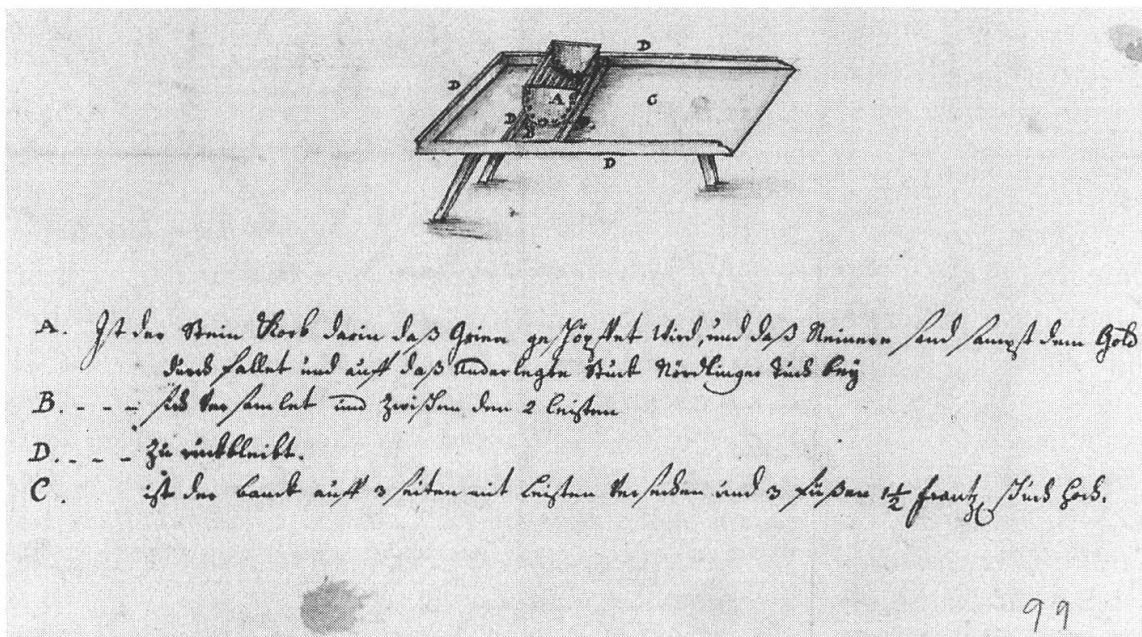 D
D
A
C
D
B
D
A. Ist der Stein Korb darin daß Grien geschöpffet wird, und daß Reinere sand sampt dem Gold
durch fallet und auff daß underlegte Stuck Nördlinger tuch bey
B. - - - sich versamlet und zwischen den 2 leisten
D. - - - zu ruckbleibt.
C. ist der banck auff 3 seiten mit leisten versechen und 3 füßen 1½ frantz. schuch hoch.
99